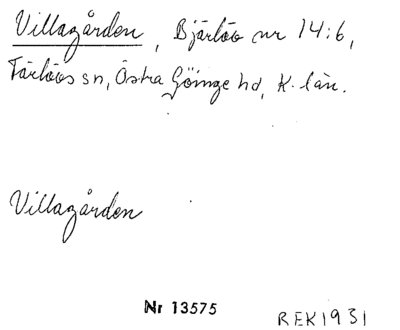 Villagården, Bjärlöv nr 14:6,
Färlövs sn, Östra Göinge hd, K. län.
Villagården
Nr 13575
REK1931